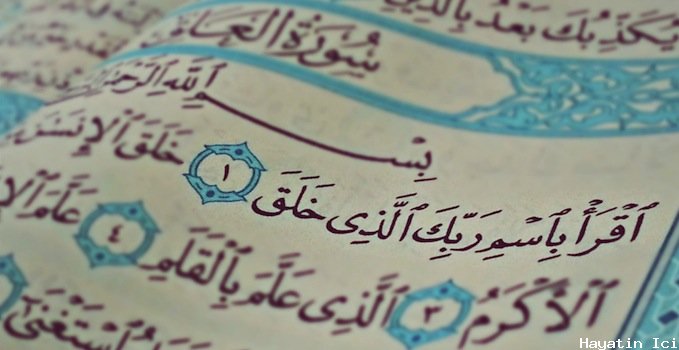 يُكَذِّبُكَ بَعْدُ بِٱلدِّينِ
سُورَةُ العَلَق
بِسۡمِ ٱللَّهِ ٱلرَّحۡمَٰنِ
ٱقۡرَأۡ بِٱسۡمِ رَبِّكَ ٱلَّذِى خَلَقَ ١ خَلَقَ ٱلۡإِنسَٰنَ
ٱلۡأَكۡرَمُ ٣ ٱلَّذِى عَلَّمَ بِٱلۡقَلَمِ ٤ عَلَّمَ
ٱسۡتَغۡنَىٰٓ
Hayatin Ici